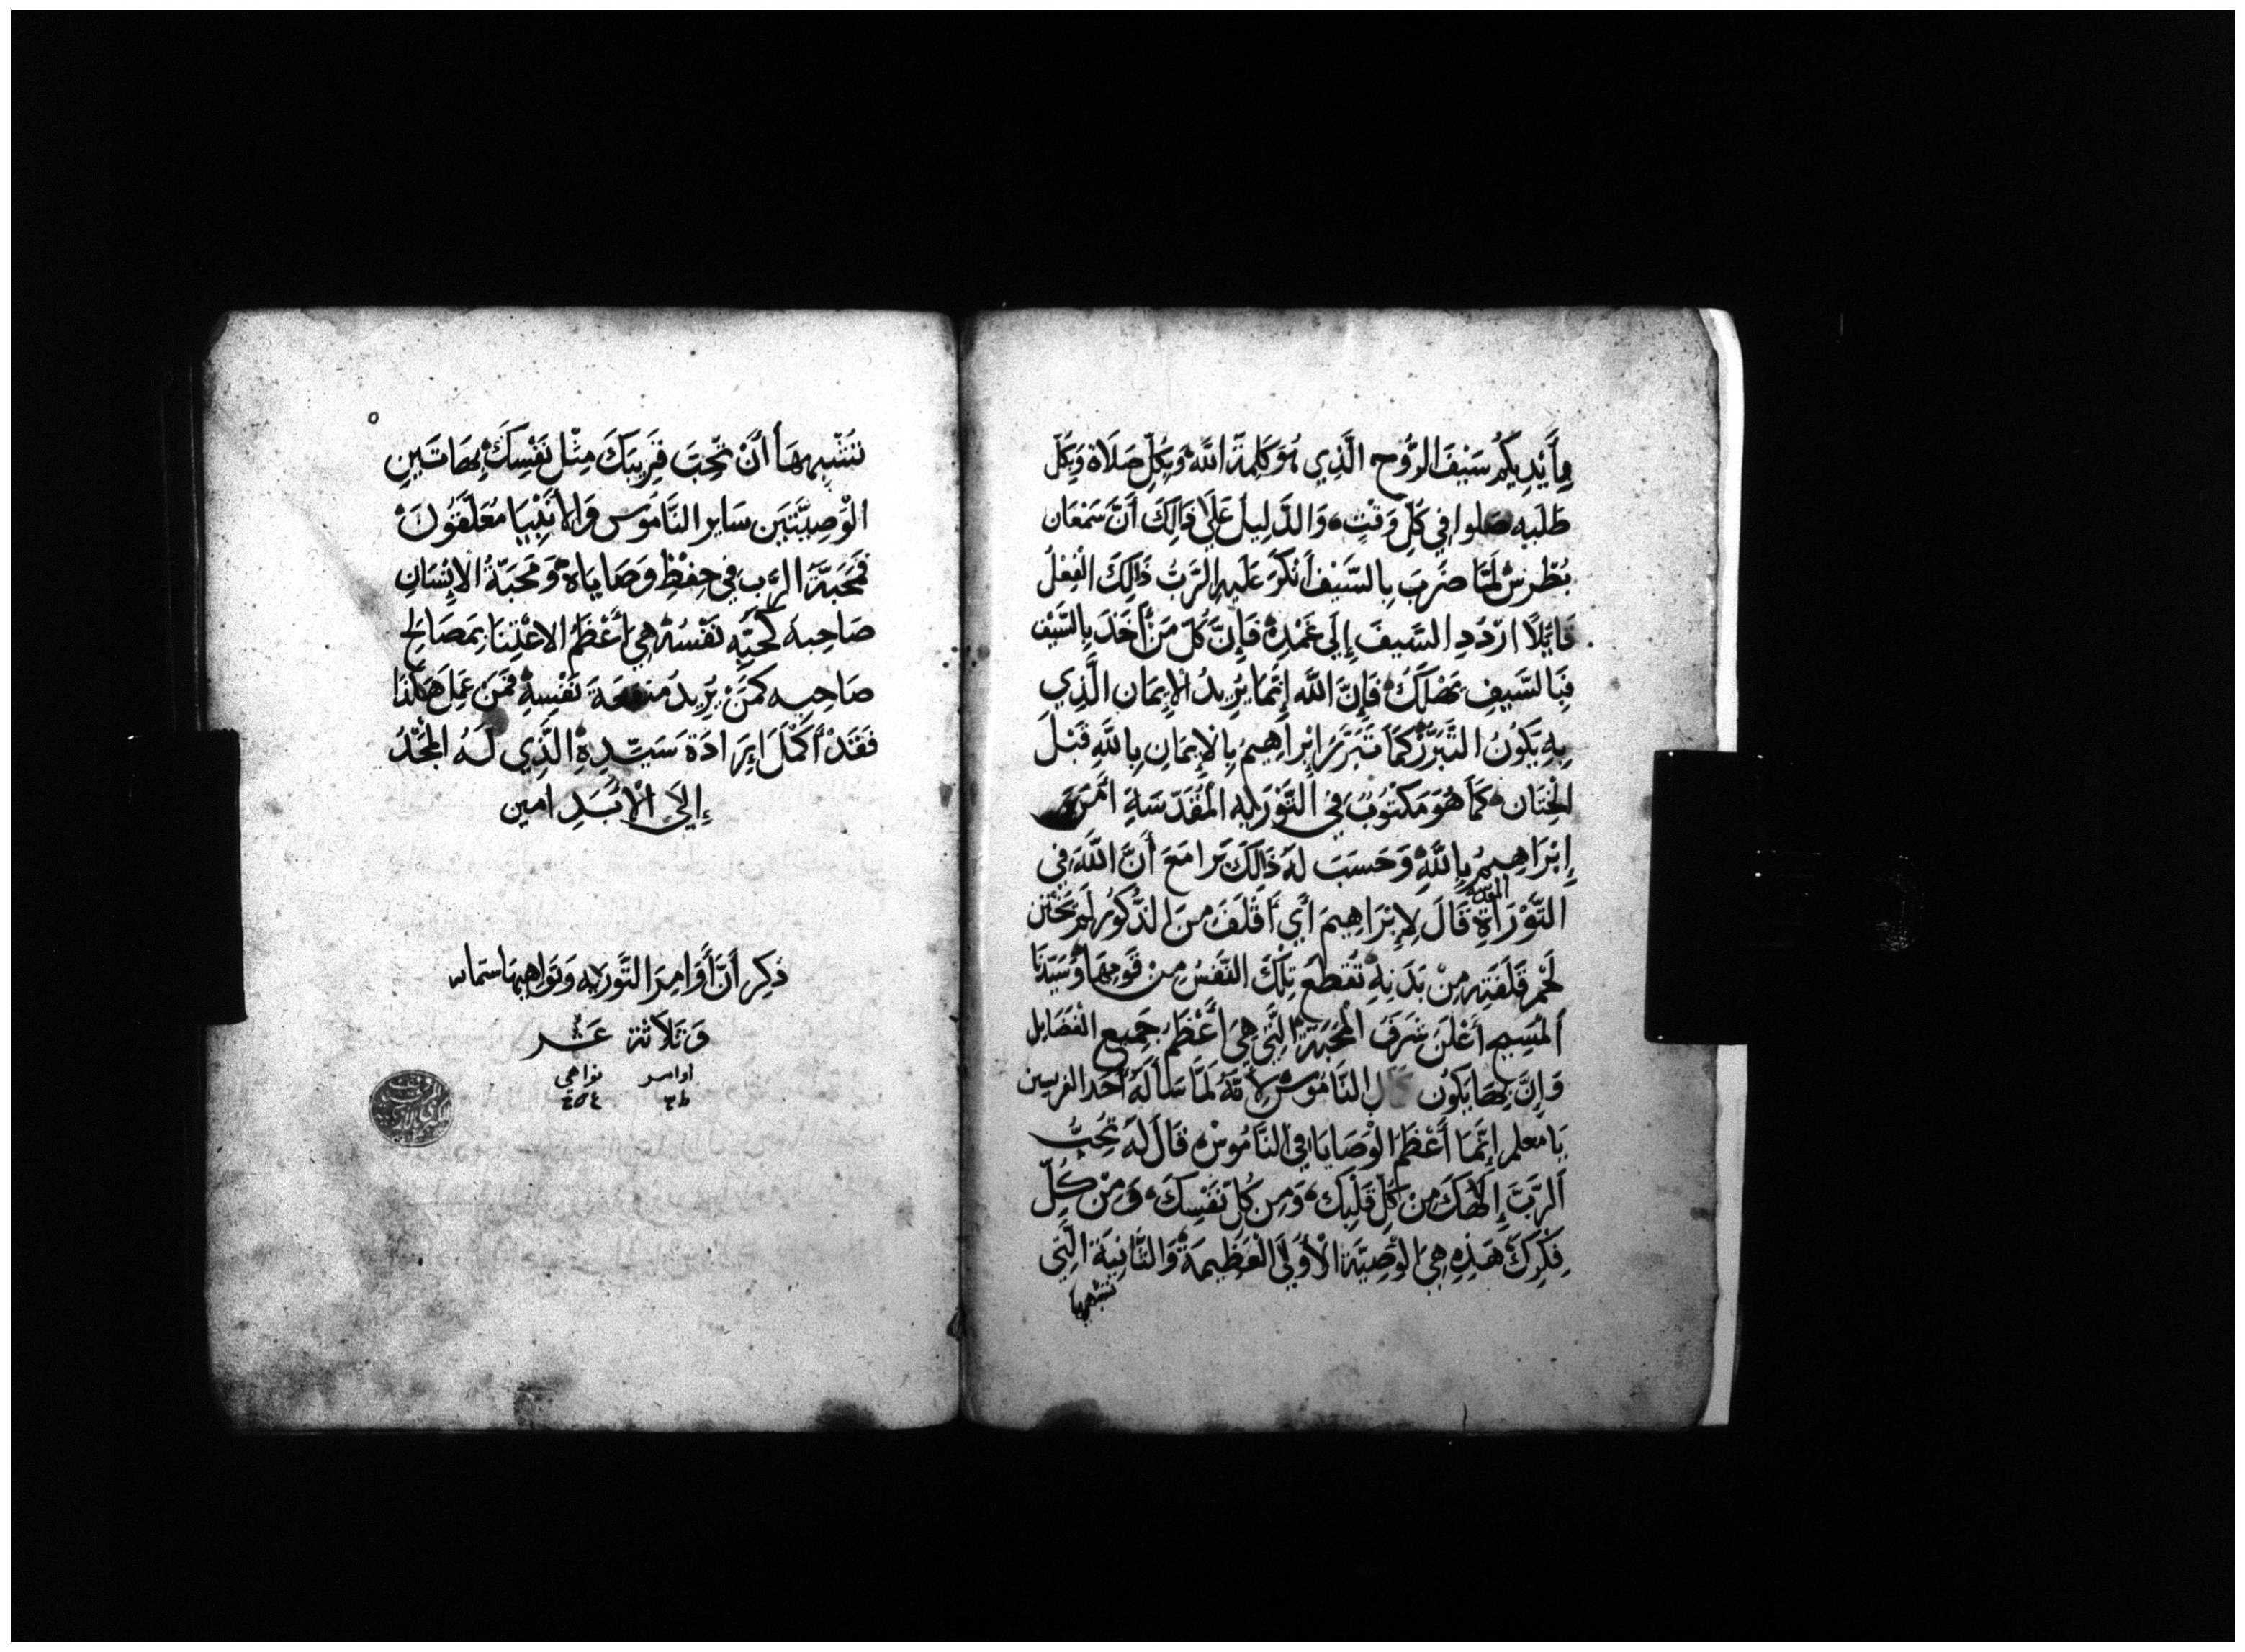 بِأَيْدِيكُم سَيْفَ الرُّوح الَّذِي هُوَ كَلِمَةَ اللَّه وَبِكُلّ صَلَاة وَبِكُلّ
طَلْبِه صَلوا في كُلّ وَقْتٍ، وَالدَّلِيل عَلَى ذَالِكَ أَنَّ سَمْعَان
بُطْرس لَمَّا ضَرَبَ بِالسَّيْف أَنْكَرَ عَلَيهِ الرَّبُّ ذَالِكَ الْفِعْلُ
قَايِلًا ارْدُدِ السَّيفَ إِلَى غِمْدِهُ فَإِنَّ كُلّ مَنْ أَخَذَ بِالسَّيْف
فَبِالسَّيفِ يَهْلَكُ فَإِنَّ اللَّه إِنَّمَا يُرِيدُ الْإِيمَان الَّذِي
بِهِ يَكُونُ التَّبَرُّرْ كَمَا تَبَرَّرَ إِبْرَاهِيمُ بِالْإِيمَانِ بِاللَّهِ قَبْلَ
الْخِتَان، كَمَا هُوَ مَكْتُوبٌ في التَّوْرَيه الْمُقَدّسَةِ آمَنَ
إِبْرَاهِيمُ بِاللَّهِ وَحَسَبَ لَهُ ذَالِكَ بَرا مَعَ أَنَّ اللَّهَ فِي
التَّوْرَاةِ المقدسه قَالَ لِإِبْرَاهِيمَ أَي أَقْلَفَ مِنَ الذُّكُور لَم يَخْتَتِن
لَحْم قَلَفَتِه مِنْ بَدَنِهِ تُقطَع تِلْكَ النَّفسُ مِنْ قَومِهَا وَسَيّدنَا
أَلمَسِيح أَعْلَنَ شَرَفَ الْمَحَبَّة الَّتِي هِيَ أَعْظَمُ جَمِيع الفَضَايل
وَإِنَّ بِهَا يَكُون كَمَال النَّامُوس لِأَنَّهُ لَمَّا سَأَلَهُ أَحَد الفريسين
يَا معلم إِنَّمَا أَعْظَمُ الْوَصَايَا في النَّامُوس، قَالَ لَهُ تُحِبُّ
اَلرَّبَّ إِلَاهَكَ مِنْ كُلّ قَلْبِكَ، وَمِن كُلّ نَفْسِكَ، وَمِنْ كُلّ
فِكْرِكَ هَذِهِ هِيَ الْوَصِيَّة الْأُولَى الْعَظِيمَة وَالثَّانِيَة الَّتِي
تشبهها
تَشَبّههَا أَنْ تُحِبَّ قَرِيبَكَ مِثْل نَفْسِكَ بِهَاتَينِ
الْوَصِيَّتَيَن سَاير النَّامُوسِ وَالأَنْبِيَا مُعَلّقُونَ
فَمَحَبَّةَ الرَّب في حِفْظِ وَصَايَاهُ وَمَحَبَّةُ الْإِنْسَانِ
صَاحِبهُ كَمحَبَّهِ نَفْسُهُ هِيَ أَعْظَمُ الاعْتِنَا بِمَصَالِح
صَاحِبه كَمَنْ يُرِيدُ مَنفعَة نَفْسِهِ فَمَنْ عَمِلَ هَكَذَا
فَقَدْ أَكْمَلَ إِرَادَة سَيّدِهِ الَّذِي لَهُ الْمَجْدُ
إِلَى الْأَبَدِ امين
ذكِر أَنَّ أَوَامِرَ التَّورَيه وَنَواهِيهَا ستماىه
وَثَلاَثة عَشر
اوامر نواهي